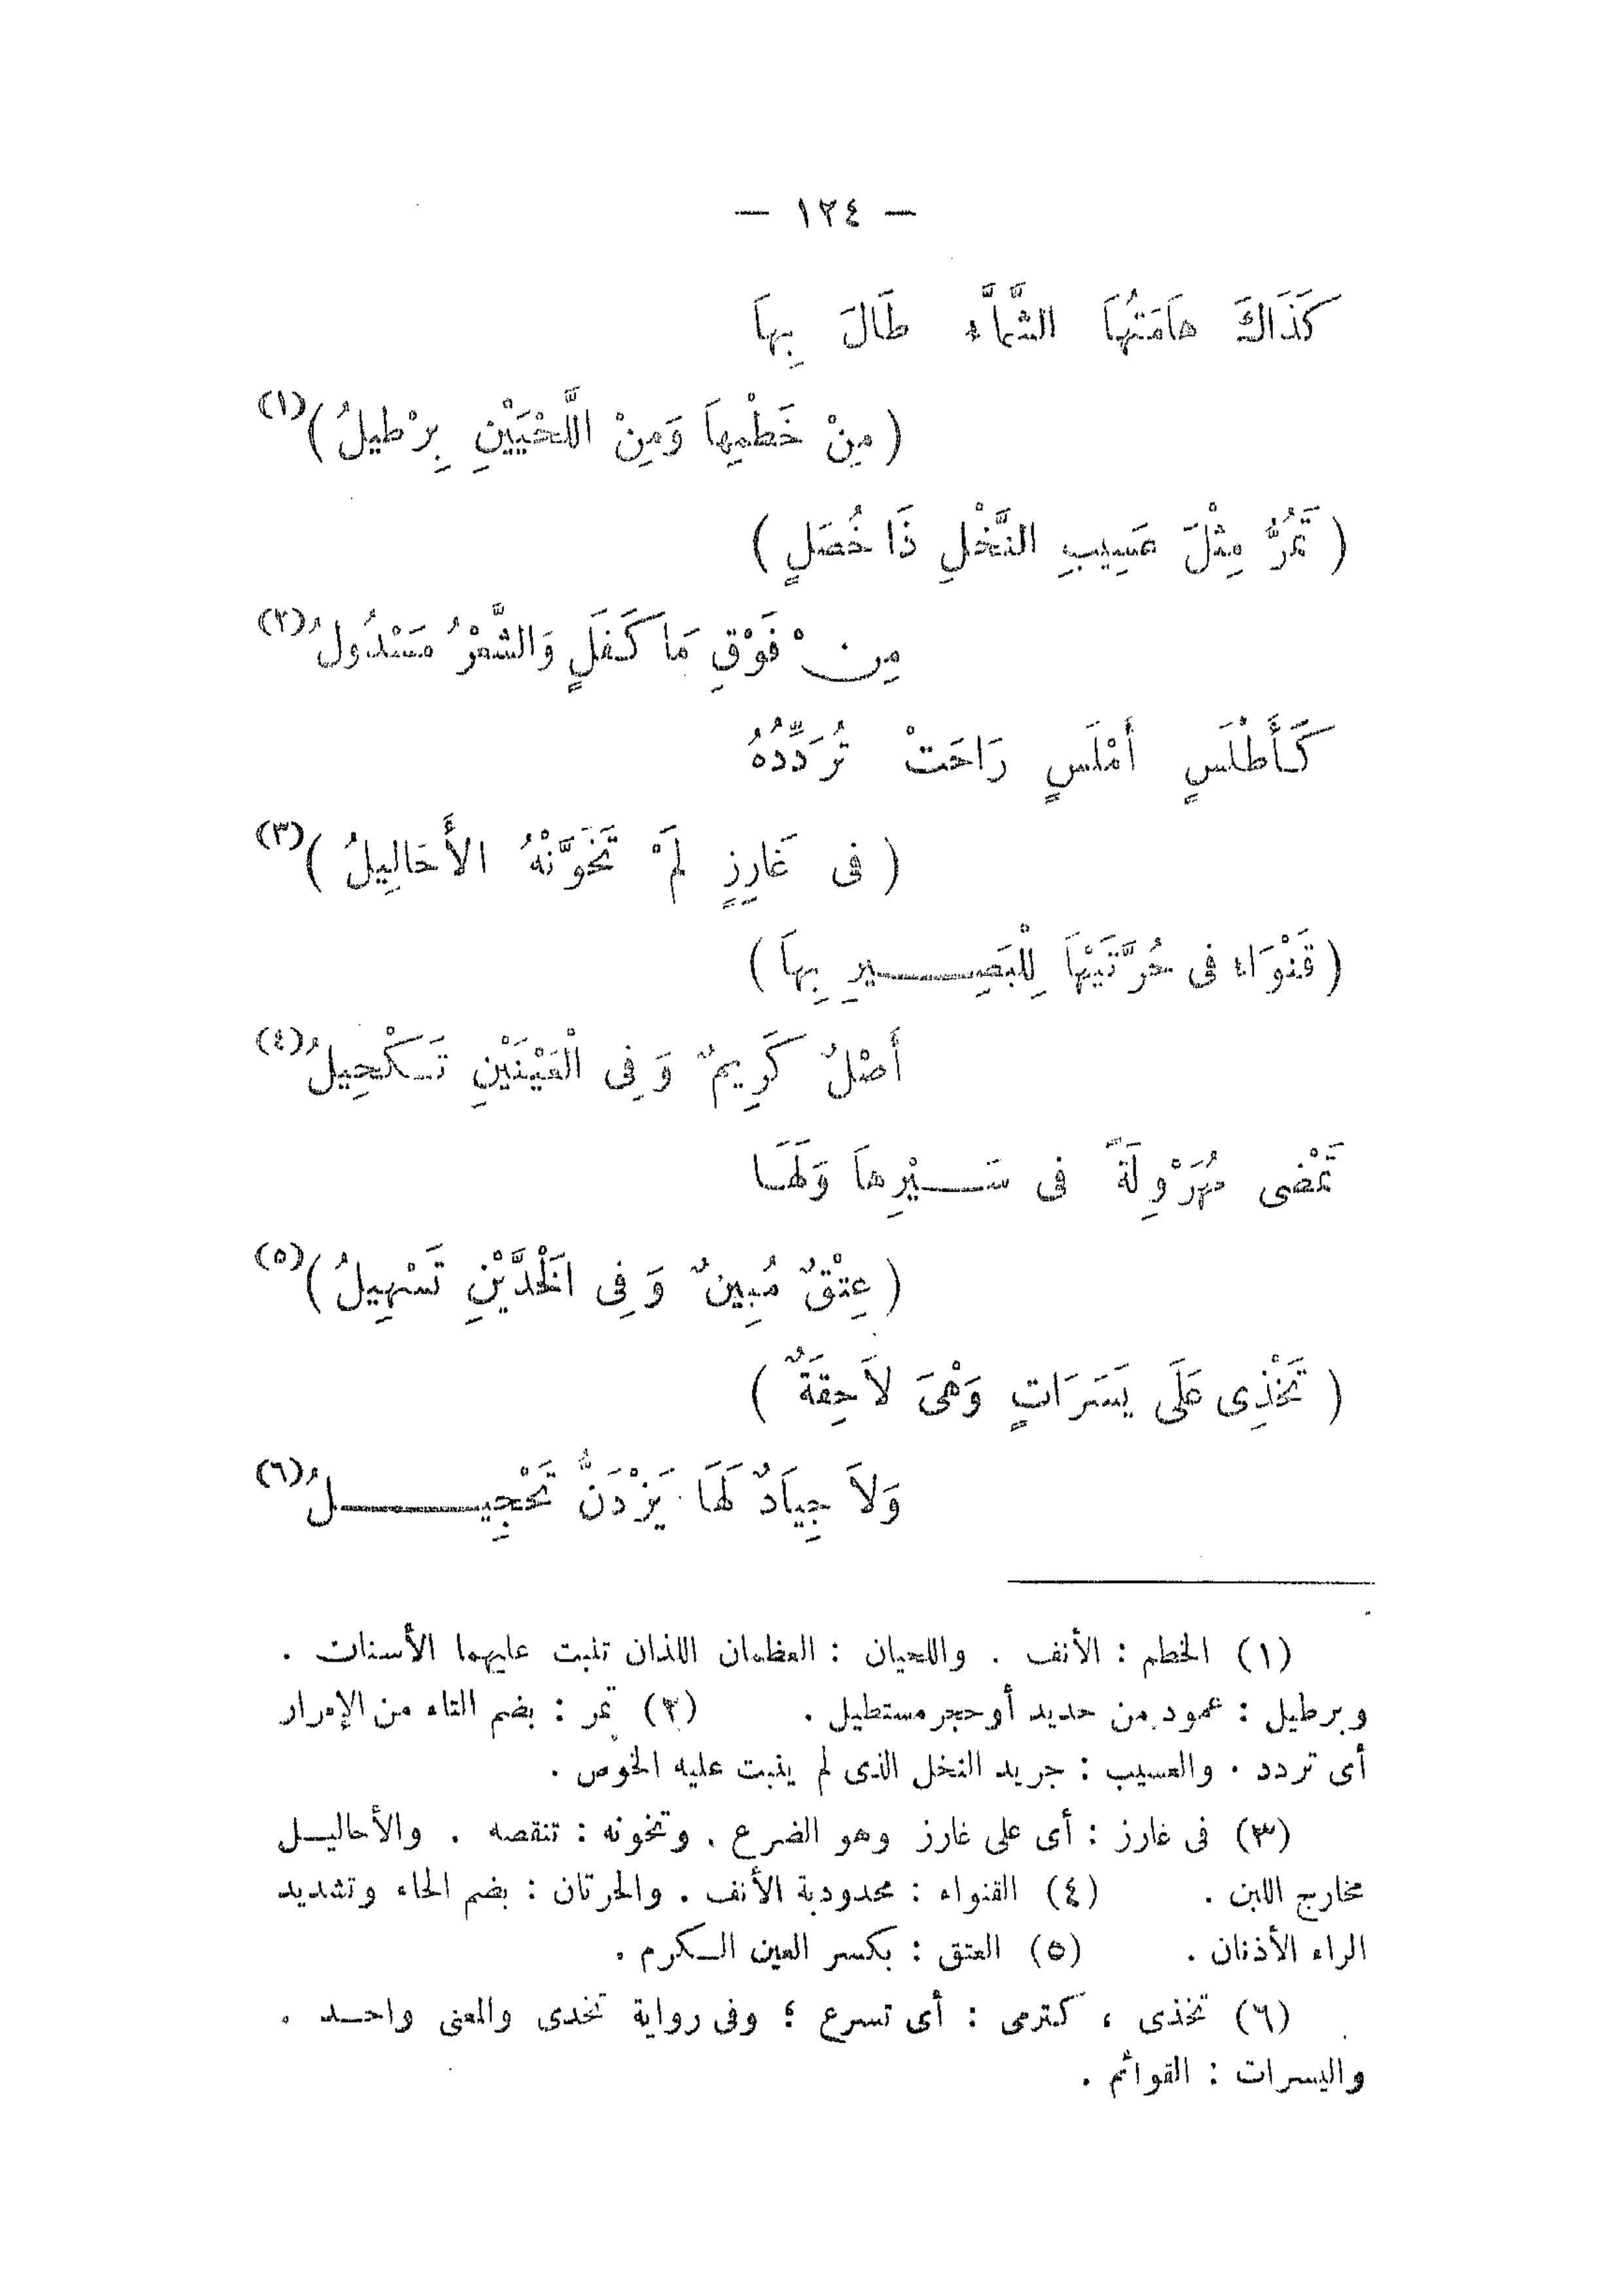 — ١٢٤ —
كَذَاكَ هَامَتُهَا الشَّمَّاء طَالَ بِهاَ
( مِنْ خَطْمِهاَ وَمِنْ اللَّحْيَيْنِ بِرْطيلُ )(١)
( تُمَرُّ مِثْلَ عَسِيبِ النَّخْلِ ذَا خُصَلٍ )
مِنْ فَوْقِ مَا كَفَلٍ وَالشَّعْرُ مَسْدُولُ(٢)
كَأَطْلَسٍ أَمْلَسٍ رَاحَتْ تُرَدِّدُهُ
( فى غَارِزٍ لَمْ تَخَوَّنْهُ الأَحَالِيلُ )(٣)
( قَنْوَاء فى حُرَّتَيْهَا لِلْبَصِيرِ بِهاَ )
أَصْلٌ كَرِيمٌ وَفِى الْعَيْنَيْنِ تَكْحِيلُ(٤)
تَمْضى مُهَرْوِلَةً فى سَيْرِهاَ وَلَهَا
( عِتْقٌ مُبِينٌ وَفِى الْخَدَّيْنِ تَسْهِيلُ )(٥)
( تَخْذِى عَلَى يَسَرَاتٍ وَهْىَ لاَحِقَةٌ )
وَلاَ جِيَادٌ لَهَا يَزْدَنُّ تَحْجِيلُ(٦)
(١) الخطم : الأنف . واللحيان : العظمان اللذان تنبت عليهما الأسنات .
وبرطيل : عمود من حديد أو حجر مستطيل . (٢) تمر : بضم التاء من الإمرار
أى تردد . والعسيب : جريد النخل الذى لم ينبت عليه الخوص .
(٣) فى غارز : أى على غارز وهو الضرع . وتخونه : تنقصه . والأحاليل
مخارج اللبن . (٤) القنواء : محدودبة الأنف . والحرتان : بضم الحاء وتشديد
الراء الأذنان . (٥) العتق : بكسر العين الكرم .
(٦) تخذى ، كترمى : أى تسرع ؛ وفى رواية تخدى والمعنى واحد .
واليسرات : القوائم .